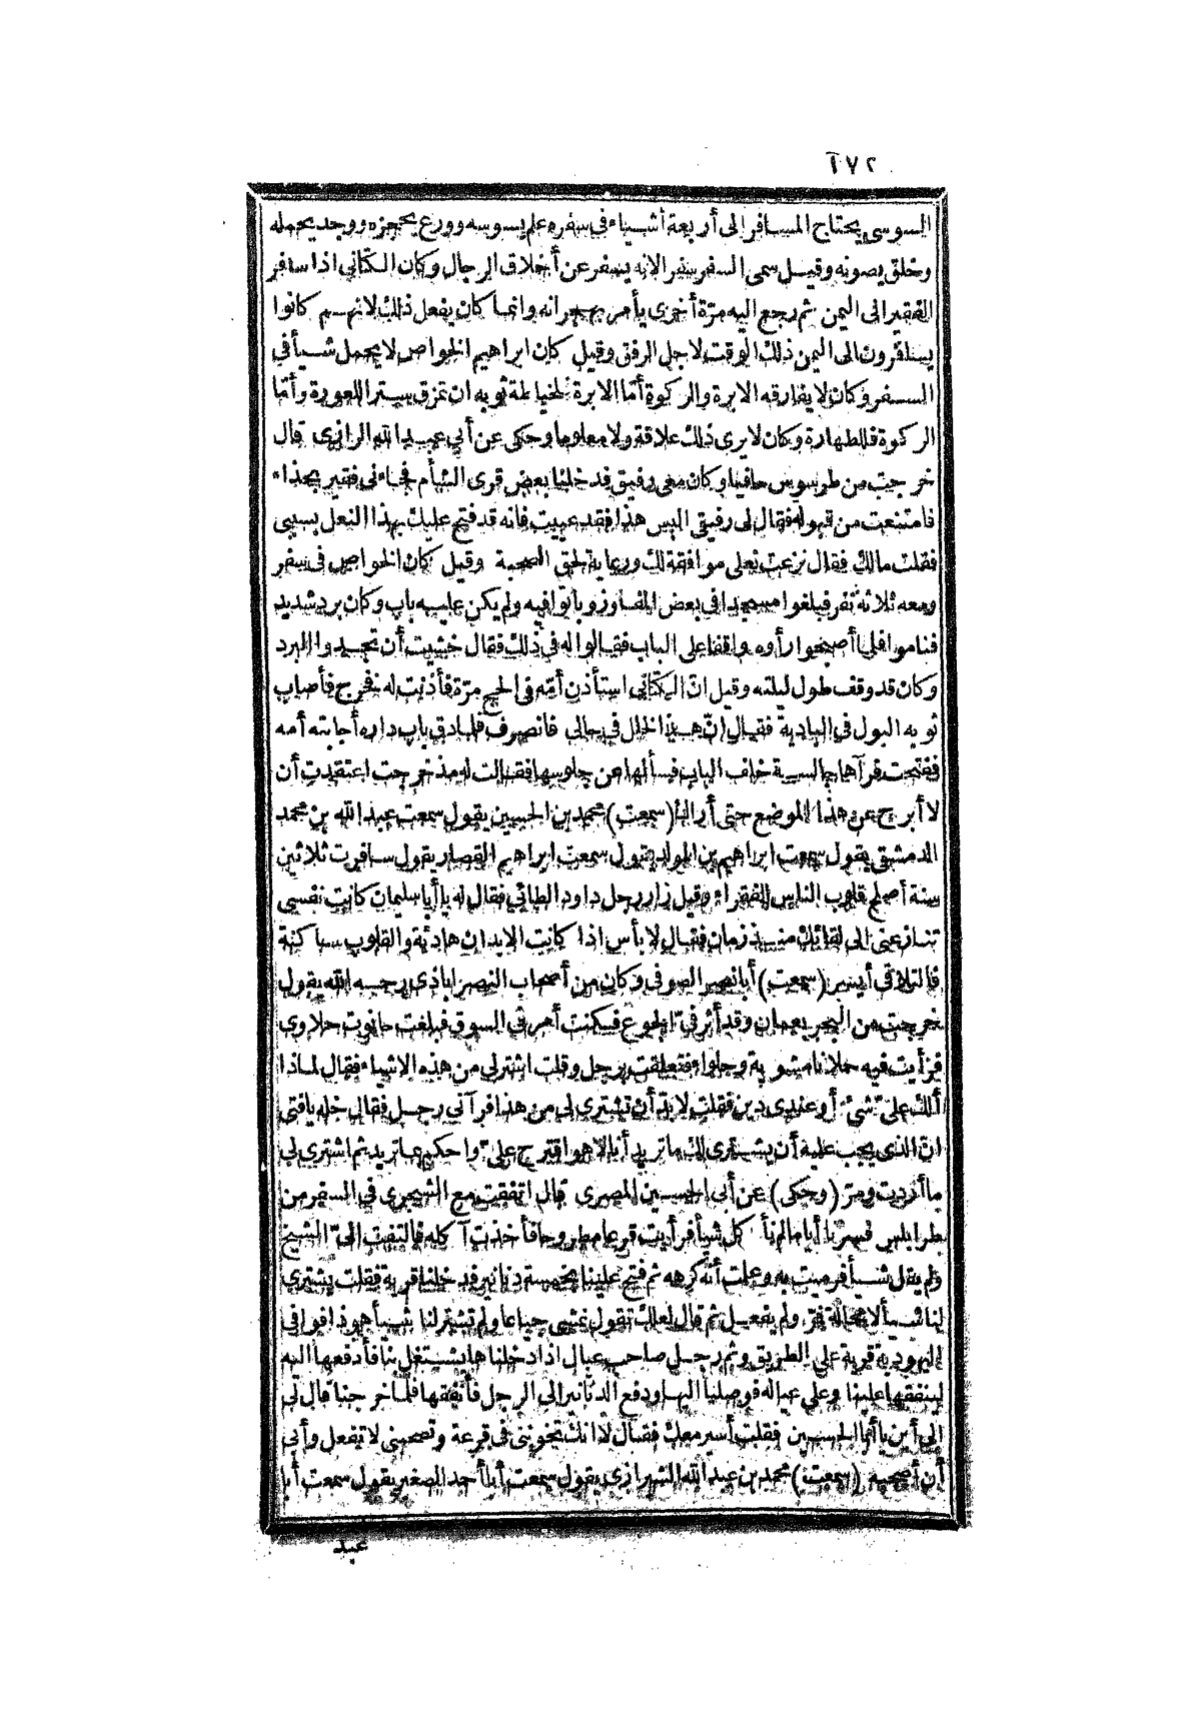 ١٧٢
السوسى يحتاج المسافر الى أربعة أشياء فى سفره علم يسوسه وورع يحجزه ووجد يحمله
وخلق يصونه وقيل سمى السفر سفرا لانه يسفر عن أخلاق الرجال وكان الكتانى اذا سافر
الفقير الى اليمن ثم رجع اليه مرّة أخرى يأمر بهجرانه وانما كان يفعل ذلك لانهم كانوا
يسافرون الى اليمن ذلك الوقت لاجل الرفق وقيل كان ابراهيم الخواص لا يحمل شيأ فى
السفر وكان لا يفارقه الابرة والركوة أمّا الابرة لخياطة ثوبه ان تمزق سترا للعورة وأمّا
الركوة فللطهارة وكان لا يرى ذلك علاقة ولا معلوما وحكى عن أبى عبد الله الرازى قال
خرجت من طرسوس حافيا وكان معى رفيق فدخلنا بعض قرى الشأم فجاءنى فقير بحذاء
فامتنعت من قبوله فقال لى رفيقى البس هذا فقد عييت فانه قد فتح عليك بهذا النعل بسببى
فقلت مالك فقال نزعت نعلى موافقة لك ورعاية لحق الصحبة وقيل كان الخواص فى سفر
ومعه ثلاثة نفر فبلغوا مسجدا فى بعض المفاوز وباتوا فيه ولم يكن عليه باب وكان برد شديد
فناموا فلما أصبحوا رأوه واقفا على الباب فقالوا له فى ذلك فقال خشيت أن تجدوا البرد
وكان قد وقف طول ليلته وقيل انّ الكتانى استأذن أمّه فى الحج مرّة فأذنت له فخرج فأصاب
ثوبه البول فى البادية فقال انّ هذا لخلل فى حالى فانصرف فلما دق باب داره أجابته أمه
ففتحت فرآها جالسة خلف الباب فسألها عن جلوسها فقالت له مذ خرجت اعتقدت أن
لا أبرح عن هذا الموضع حتى أراك (سمعت) محمد بن الحسين يقول سمعت عبد الله بن محمد
الدمشقى يقول سمعت ابراهيم بن المولد يقول سمعت ابراهيم القصار يقول سافرت ثلاثين
سنة أصلح قلوب الناس للفقراء وقيل زار رجل داود الطائى فقال له يا أبا سليمان كانت نفسى
تنازعنى الى لقائك منذ زمان فقال لا بأس اذا كانت الابدان هادئة والقلوب ساكنة
فالتلاقى أيسر (سمعت) أبا نصر الصوفى وكان من أصحاب النصراباذى رحمه الله يقول
خرجت من البحر بعمان وقد أثر فىّ الجوع فكنت أمر فى السوق فبلغت حانوت حلاوى
فرأيت فيه حملانا مشوية وحلواء فتعلقت برجل وقلت اشترلى من هذه الاشياء فقال لماذا
ألك علىّ شئ أو عندى دين فقلت لا بد أن تشترى لى من هذا فرآنى رجل فقال خله يا فتى
انّ الذى يجب عليه أن يشترى لك ما تريد أنا لا هو اقترح علىّ واحكم بما تريد ثم اشترى لى
ما أردت ومرّ (وحكى) عن أبى الحسين المصرى قال اتفقت مع الشجرى فى السفر من
طرابلس فسرنا أياما لم نأكل شيأ فرأيت قرعا مطروحا فأخذت آكله فالتفت الىّ الشيخ
ولم يقل شيأ فرميت به وعلمت أنه كرهه ثم فتح علينا بخمسة دنانير فدخلنا قرية فقلت يشترى
لنا شيأ لا محالة فمرّ ولم يفعل ثم قال لعلك تقول نمشى جياعا ولم تشتر لنا شيأ هوذا فوافى
اليهودية قرية على الطريق وثم رجل صاحب عيال اذا دخلناها يشتغل بنا فأدفعها اليه
لينفقها علينا وعلى عياله فوصلنا اليها ودفع الدنانير الى الرجل فأنفقها فلما خرجنا قال لى
الى أين يا أبا الحسين فقلت أسير معك فقال لا انك تخوننى فى قرعة وتصحبنى لا تفعل وأبى
أن أصحبه (سمعت) محمد بن عبد الله الشيرازى يقول سمعت أبا أحمد الصغير يقول سمعت أبا
عبد